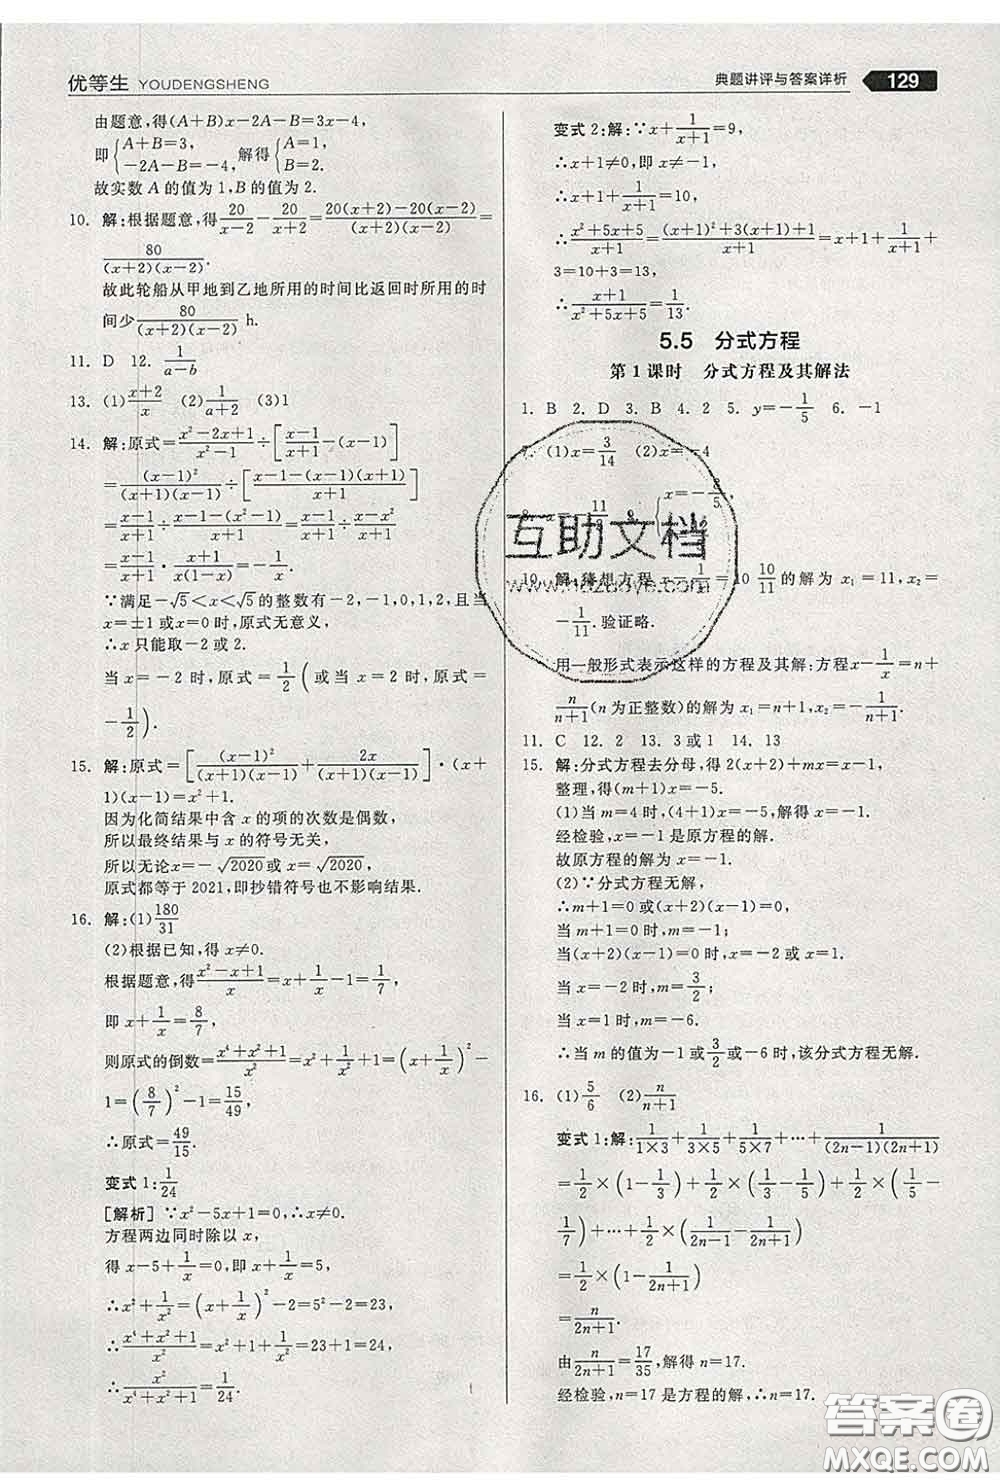 优等生 YOUDENGSHENG
典题讲评与答案详析 129
由题意,得(A+B)x-2A-B=3x-4,
即{A+B=3, -2A-B=-4, 解得{A=1, B=2.
故实数 A 的值为 1,B 的值为 2.
10. 解:根据题意,得20/(x-2)-20/(x+2)=[20(x+2)-20(x-2)]/[(x+2)(x-2)]=
80/[(x+2)(x-2)].
故此轮船从甲地到乙地所用的时间比返回时所用的时
间少80/[(x+2)(x-2)] h.
11. D 12. 1/(a-b)
13. (1)(x+2)/x (2)1/(a+2) (3)1
14. 解:原式=(x²-2x+1)/(x²-1)÷[(x-1)/(x+1)-(x-1)]
=(x-1)²/[(x+1)(x-1)]÷[x-1-(x-1)(x+1)]/(x+1)
=(x-1)/(x+1)÷[x-1-(x²-1)]/(x+1)=(x-1)/(x+1)÷(x-x²)/(x+1)
=(x-1)/(x+1)·(x+1)/[-x(x-1)]=-1/x.
∵满足-√5<x<√5的整数有-2,-1,0,1,2,且当
x=±1 或 0 时,原式无意义,
∴x 只能取-2 或 2.
当 x=-2 时,原式=1/2(或当 x=2 时,原式=
-1/2).
15. 解:原式=[(x-1)²/[(x+1)(x-1)]+2x/[(x+1)(x-1)]]·(x+
1)(x-1)=x²+1.
因为化简结果中含 x 的项的次数是偶数,
所以最终结果与 x 的符号无关,
所以无论x=-√2020或x=√2020,
原式都等于 2021,即抄错符号也不影响结果.
16. 解:(1)180/31
(2)根据已知,得 x≠0.
根据题意,得(x²-x+1)/x=x+1/x-1=1/7,
即 x+1/x=8/7,
则原式的倒数=(x⁴+x²+1)/x²=x²+1/x²+1=(x+1/x)²-
1=(8/7)²-1=15/49,
∴原式=49/15.
变式 1:1/24
[解析] ∵x²-5x+1=0,∴x≠0.
方程两边同时除以 x,
得 x-5+1/x=0,即x+1/x=5,
∴x²+1/x²=(x+1/x)²-2=5²-2=23,
∴(x⁴+x²+1)/x²=x²+1/x²+1=23+1=24,
∴x²/(x⁴+x²+1)=1/24.
变式 2:解:∵x+1/(x+1)=9,
∴x+1≠0,即 x≠-1,
∴x+1+1/(x+1)=10,
∴(x²+5x+5)/(x+1)=[(x+1)²+3(x+1)+1]/(x+1)=x+1+1/(x+1)+
3=10+3=13,
∴(x+1)/(x²+5x+5)=1/13.
5.5 分式方程
第 1 课时 分式方程及其解法
1. B 2. D 3. B 4. 2 5. y=-1/5 6. -1
7. (1)x=3/14 (2)x=-4
互助文档
10. 解:猜想方程 x-1/x=10 10/11的解为 x₁=11,x₂=
-1/11.验证略.
用一般形式表示这样的方程及其解:方程x-1/x=n+
n/(n+1)(n 为正整数)的解为 x₁=n+1,x₂=-1/(n+1).
11. C 12. 2 13. 3 或 1 14. 13
15. 解:分式方程去分母,得 2(x+2)+mx=x-1,
整理,得(m+1)x=-5.
(1)当 m=4 时,(4+1)x=-5,解得 x=-1.
经检验,x=-1 是原方程的解.
故原方程的解为 x=-1.
(2)∵分式方程无解,
∴m+1=0 或(x+2)(x-1)=0.
当 m+1=0 时,m=-1;
当(x+2)(x-1)=0 时,x=-2 或x=1.
当 x=-2 时,m=3/2;
当 x=1 时,m=-6.
∴当 m 的值为-1 或3/2或-6时,该分式方程无解.
16. (1)5/6 (2)n/(n+1)
变式 1:解:1/(1×3)+1/(3×5)+1/(5×7)+…+1/[(2n-1)(2n+1)]
=1/2×(1-1/3)+1/2×(1/3-1/5)+1/2×(1/5-
1/7)+…+1/2×(1/(2n-1)-1/(2n+1))
=1/2×(1-1/(2n+1))
=n/(2n+1).
由n/(2n+1)=17/35,解得 n=17.
经检验,n=17 是方程的解,∴n=17.
答案圈
MXQE.COM